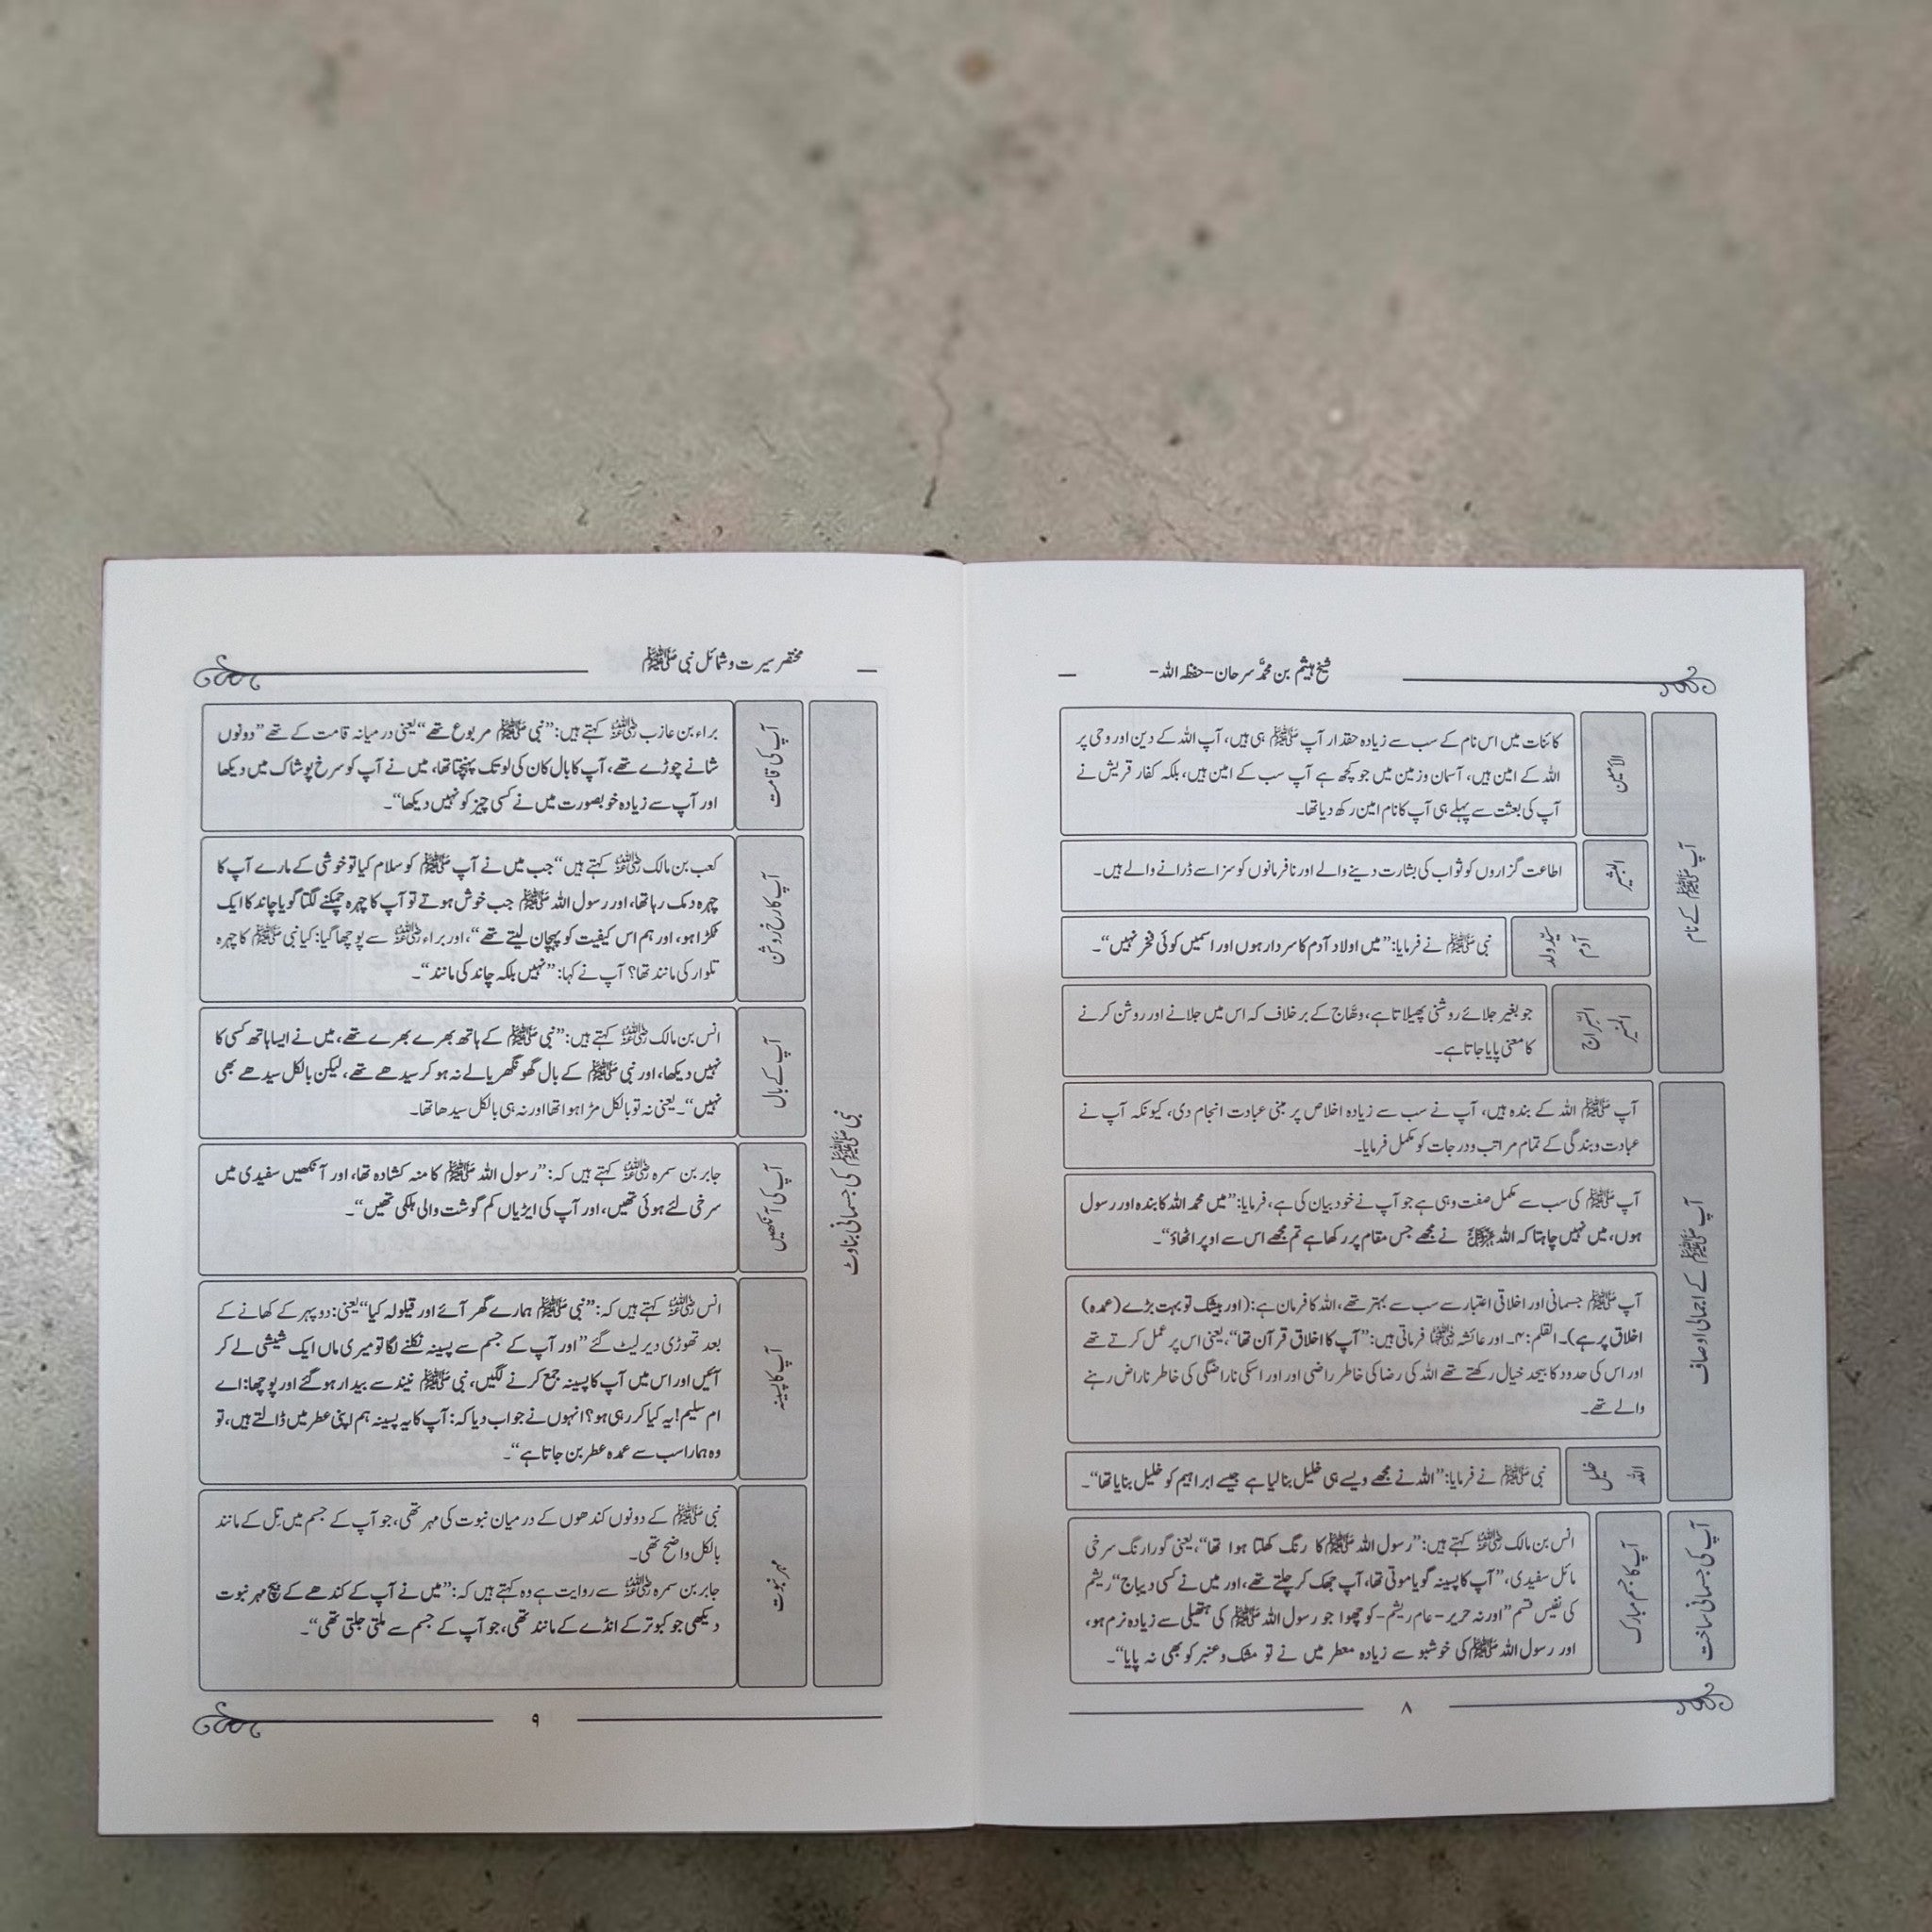 شیخ ہیثم بن محمد سرحان-حفظہ اللہ-
آپ ﷺ کے نام
الأمین
کائنات میں اس نام کے سب سے زیادہ حقدار آپ ﷺ ہی ہیں، آپ اللہ کے دین اور وحی پر
اللہ کے امین ہیں، آسمان وزمین میں جو کچھ ہے آپ سب کے امین ہیں، بلکہ کفار قریش نے
آپ کی بعثت سے پہلے ہی آپ کا نام امین رکھ دیا تھا۔
البشیر
اطاعت گزاروں کو ثواب کی بشارت دینے والے اور نافرمانوں کو سزا سے ڈرانے والے ہیں۔
سیّد ولد
آدم
نبی ﷺ نے فرمایا: ”میں اولاد آدم کا سردار ہوں اور اسمیں کوئی فخر نہیں“۔
السّراج
المنیر
جو بغیر جلائے روشنی پھیلاتا ہے، وھّاج کے برخلاف کہ اس میں جلانے اور روشن کرنے
کا معنی پایا جاتا ہے۔
آپ ﷺ کے اجمالی اوصاف
آپ ﷺ اللہ کے بندہ ہیں، آپ نے سب سے زیادہ اخلاص پر مبنی عبادت انجام دی، کیونکہ آپ نے
عبادت وبندگی کے تمام مراتب ودرجات کو مکمل فرمایا۔
آپ ﷺ کی سب سے مکمل صفت وہی ہے جو آپ نے خود بیان کی ہے، فرمایا: ”میں محمد اللہ کا بندہ اور رسول
ہوں، میں نہیں چاہتا کہ اللہ عزوجل نے مجھے جس مقام پر رکھا ہے تم مجھے اس سے اوپر اٹھاؤ“۔
آپ ﷺ جسمانی اور اخلاقی اعتبار سے سب سے بہتر تھے، اللہ کا فرمان ہے: (اور بیشک تو بہت بڑے (عمدہ)
اخلاق پر ہے)۔ القلم: ۴۔ اور عائشہ رضی اللہ عنہا فرماتی ہیں: ”آپ کا اخلاق قرآن تھا“، یعنی اس پر عمل کرتے تھے
اور اس کی حدود کا بیحد خیال رکھتے تھے اللہ کی رضا کی خاطر راضی اور اور اسکی ناراضگی کی خاطر ناراض رہنے
والے تھے۔
خلیل
اللہ
نبی ﷺ نے فرمایا: ”اللہ نے مجھے ویسے ہی خلیل بنالیا ہے جیسے ابراہیم کو خلیل بنایا تھا“۔
آپ کی جسمانی ساخت
آپ کا جسم مبارک
انس بن مالک رضی اللہ عنہ کہتے ہیں: ”رسول اللہ ﷺ کا رنگ کھلتا ہوا تھا“، یعنی گورا رنگ سرخی
مائل سفیدی، ”آپ کا پسینہ گویا موتی تھا، آپ جھک کر چلتے تھے، اور میں نے کسی دیباج“ ریشم
کی نفیس قسم ”اور نہ حریر-عام ریشم-کو چھوا جو رسول اللہ ﷺ کی ہتھیلی سے زیادہ نرم ہو،
اور رسول اللہ ﷺ کی خوشبو سے زیادہ معطر میں نے تو مشک وعنبر کو بھی نہ پایا“۔
۸
مختصر سیرت وشمائل نبی ﷺ
نبی ﷺ کی جسمانی بناوٹ
آپ کی قامت
براء بن عازب رضی اللہ عنہ کہتے ہیں: ”نبی ﷺ مربوع تھے“ یعنی درمیانہ قامت کے تھے ”دونوں
شانے چوڑے تھے، آپ کا بال کان کی لو تک پہنچتا تھا، میں نے آپ کو سرخ پوشاک میں دیکھا
اور آپ سے زیادہ خوبصورت میں نے کسی چیز کو نہیں دیکھا“۔
آپ کا رخ روشن
کعب بن مالک رضی اللہ عنہ کہتے ہیں ”جب میں نے آپ ﷺ کو سلام کیا تو خوشی کے مارے آپ کا
چہرہ دمک رہا تھا، اور رسول اللہ ﷺ جب خوش ہوتے تو آپ کا چہرہ چمکنے لگتا گویا چاند کا ایک
ٹکڑا ہو، اور ہم اس کیفیت کو پہچان لیتے تھے“، اور براء رضی اللہ عنہ سے پوچھا گیا: کیا نبی ﷺ کا چہرہ
تلوار کی مانند تھا؟ آپ نے کہا: ”نہیں بلکہ چاند کی مانند“۔
آپ کے بال
انس بن مالک رضی اللہ عنہ کہتے ہیں: ”نبی ﷺ کے ہاتھ بھرے بھرے تھے، میں نے ایسا ہاتھ کسی کا
نہیں دیکھا، اور نبی ﷺ کے بال گھونگھریالے نہ ہو کر سیدھے تھے، لیکن بالکل سیدھے بھی
نہیں“۔ یعنی نہ تو بالکل مڑا ہوا تھا اور نہ ہی بالکل سیدھا تھا۔
آپ کی آنکھیں
جابر بن سمرہ رضی اللہ عنہ کہتے ہیں کہ: ”رسول اللہ ﷺ کا منہ کشادہ تھا، اور آنکھیں سفیدی میں
سرخی لئے ہوئی تھیں، اور آپ کی ایڑیاں کم گوشت والی ہلکی تھیں“۔
آپ کا پسینہ
انس رضی اللہ عنہ کہتے ہیں کہ: ”نبی ﷺ ہمارے گھر آئے اور قیلولہ کیا“ یعنی: دوپہر کے کھانے کے
بعد تھوڑی دیر لیٹ گئے ”اور آپ کے جسم سے پسینہ نکلنے لگا تو میری ماں ایک شیشی لے کر
آئیں اور اس میں آپ کا پسینہ جمع کرنے لگیں، نبی ﷺ نیند سے بیدار ہو گئے اور پوچھا: اے
ام سلیم! یہ کیا کر رہی ہو؟ انہوں نے جواب دیا کہ: آپ کا یہ پسینہ ہم اپنی عطر میں ڈالتے ہیں، تو
وہ ہمارا سب سے عمدہ عطر بن جاتا ہے“۔
مہر نبوت
نبی ﷺ کے دونوں کندھوں کے درمیان نبوت کی مہر تھی، جو آپ کے جسم میں تِل کے مانند
بالکل واضح تھی۔
جابر بن سمرہ رضی اللہ عنہ سے روایت ہے وہ کہتے ہیں کہ: ”میں نے آپ کے کندھے کے بیچ مہر نبوت
دیکھی جو کبوتر کے انڈے کے مانند تھی، جو آپ کے جسم سے ملتی جلتی تھی“۔
۹